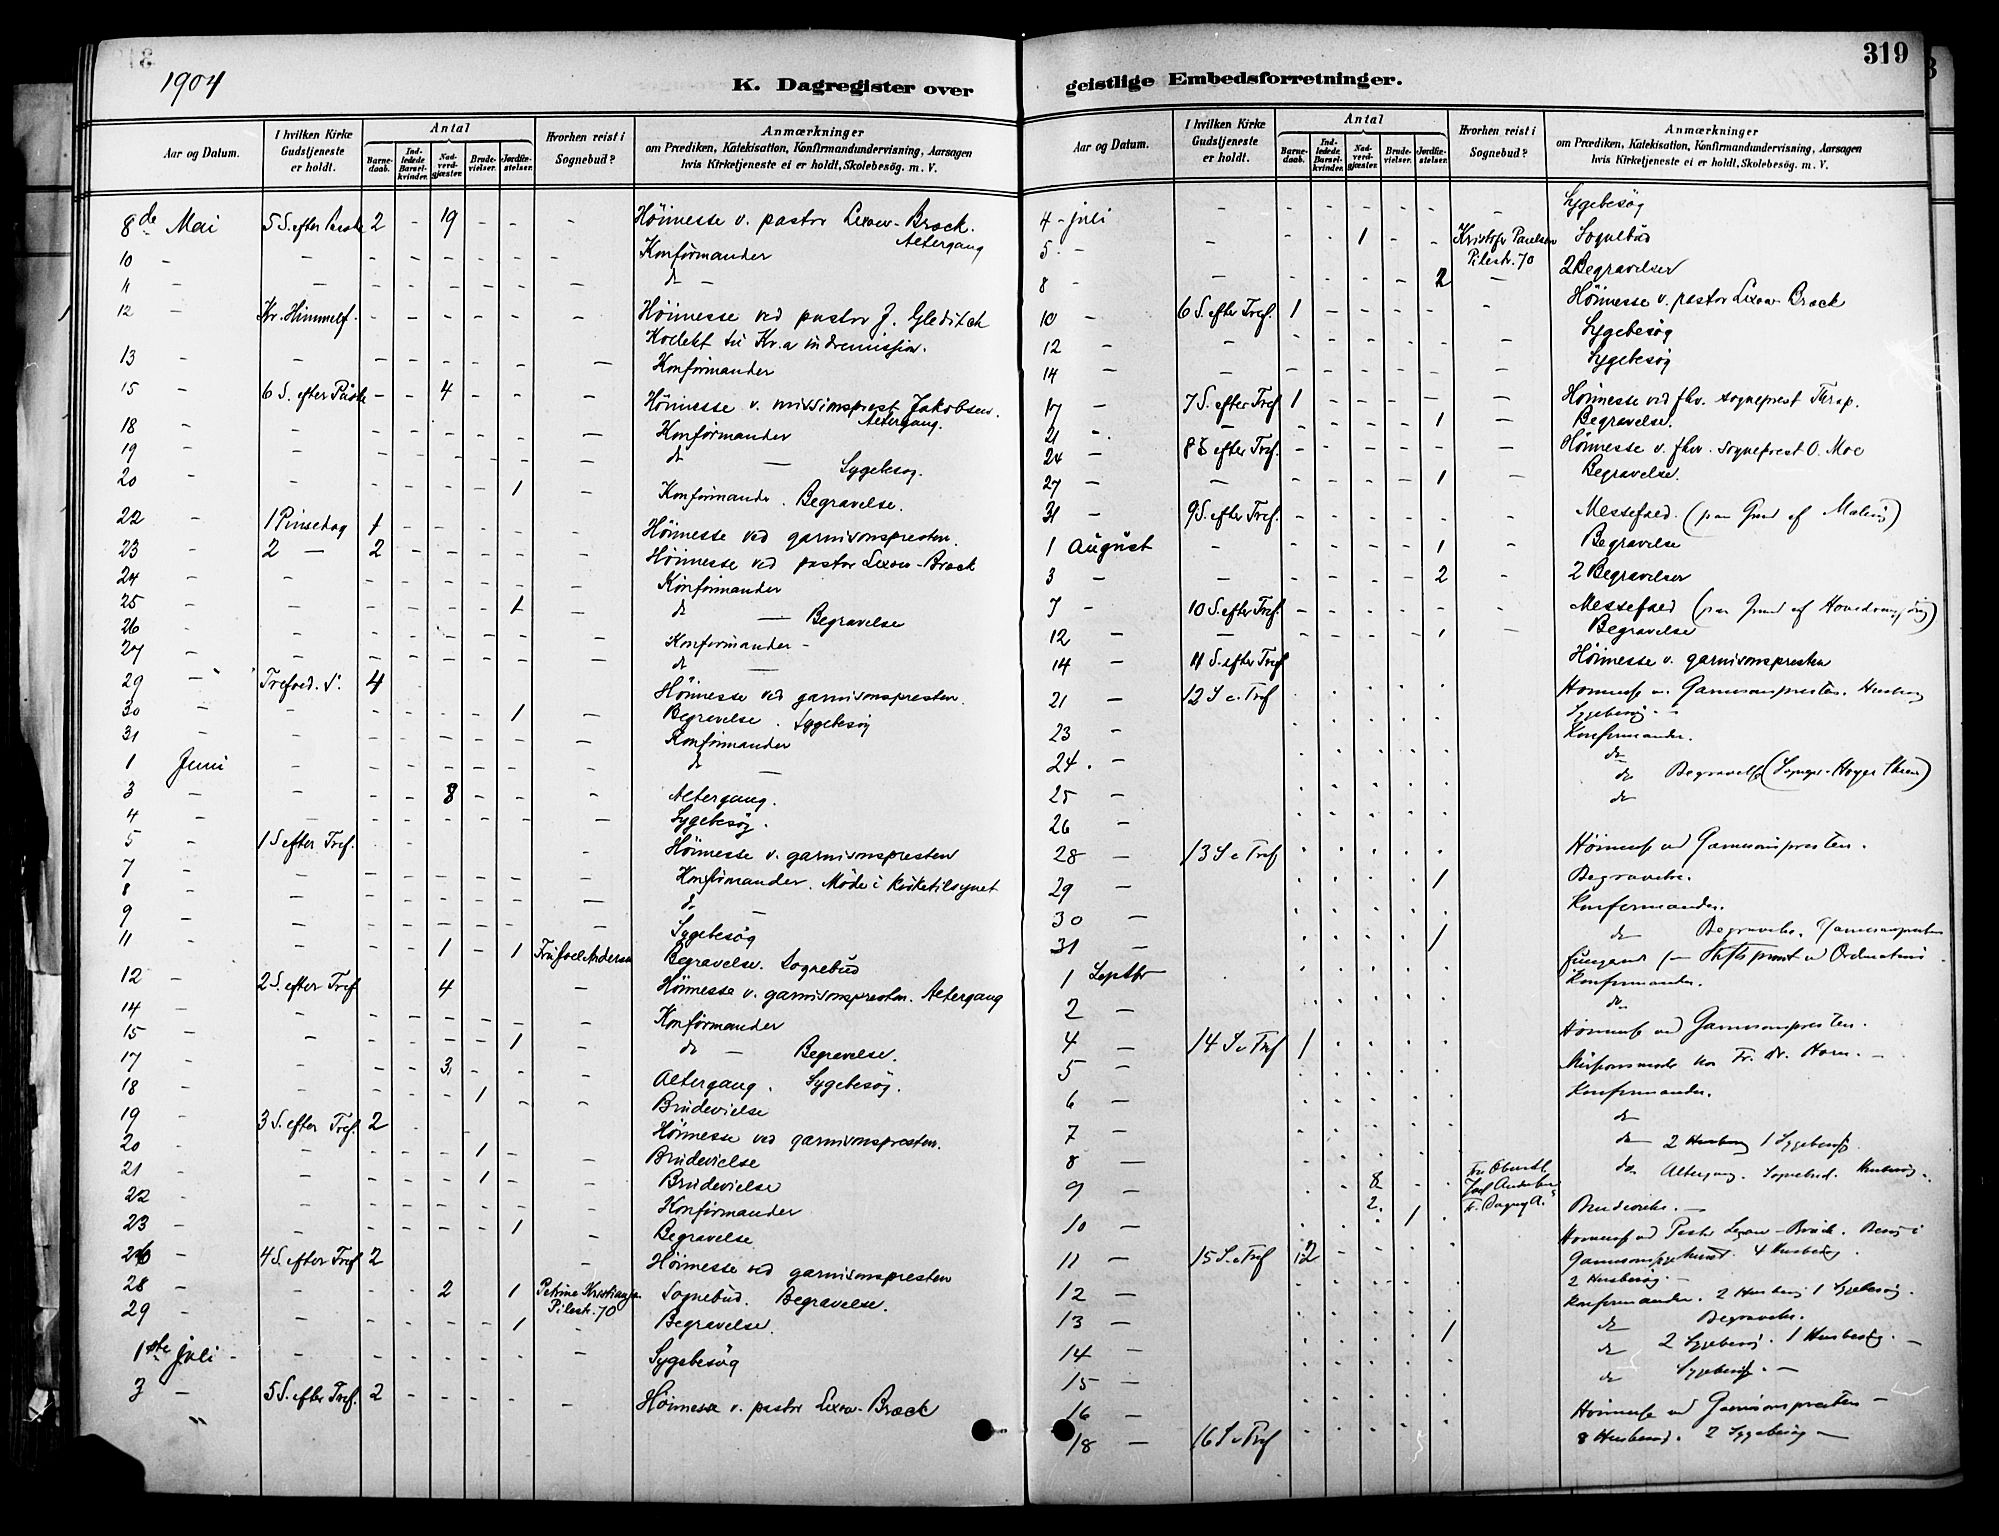 319
1904
K. Dagregister over
Aar og Datum.
I hvilken Kirke Gudstjeneste er holdt.
Antal
Barne-daab.
Ind-ledede Barsel-kvinder.
Nad-verd-gjæster.
Brude-vielser.
Jordfæ-stelser.
Hvorhen reist i Sognebud?
Anmærkninger
om Prædiken, Katekisation, Konfirmandundervisning, Aarsagen
hvis Kirketjeneste ei er holdt, Skolebesög. m. V.
8de Mai 5 S. efter Paaske 2 - 19 - - - Höimesse v. pastor Lexow-Brock.
Altergang
10 - - - - - - - - Konfirmander
11 - - - - - - - - do -
12 - Kr. Himmelf. - - - - - - Höimesse ved pastor J. Gleditch
Kollekt til Kr.a indremission.
13 - - - - - - - - Konfirmander
15 - 6 S. efter Paaske - - 4 - - - Höimesse v. missionsprest Jakobsen.
Altergang.
18 - - - - - - - - Konfirmander
19 - - - - - - - - do - Sygebesög.
20 - - - - - - 1 - Konfirmander. Begravelse.
22 - 1 Pinsedag 1 - - - - - Höimesse ved garnisonspresten.
23 - 2 - 2 - - - - - Höimesse ved pastor Lexow-Brock
24 - - - - - - - - Konfirmander
25 - - - - - - 1 - do - Begravelse
26 - - - - - - - - Konfirmander -
27 - - - - - - - - do -
29 - Trefold. S. 4 Höimesse ved garnisonspresten.
30 - - - - - - 1 - Begravelse. Sygebesög
31 - - - - - - - - Konfirmander
1 Juni - - - - - - - do -
3 - - - - 8 - - - Altergang.
4 - - - - - - - - Sygebesög.
5 - 1 S efter Tref. - - - Höimesse v. garnisonspresten
7 - - - - - - - - Konfirmander. Möde i kirketilsynet
8 - - - - - - - - do -
9 - - - - - - - - Sygebesög
11 - - - - 1 - 1 Fru Joel Andersen Begravelse. Sognebud
12 - 2 S. efter Tref. 4 - Höimesse v. garnisonspresten. Altergang
14 - - - - - - - - Konfirmander
15 - - - - - - 1 - do - Begravelse.
17 - - - 3 - - - Altergang. Sygebesög.
18 - - - - 1 - - Brudevielse
19 - 3 S. efter Tref. 2 - - - Höimesse ved garnisonspresten.
20 - - - - - 1 - - Brudevielse
21 - - - - - 1 - - Brudevielse
22 - - - - - - - - Konfirmander
23 - - - - - - 1 - Begravelse
26 - 4 S. efter Tref 2 - Höimesse ved garnisonspresten
28 - - - - 2 - 1 Petrine Kristiansen Pilestr. 70 Sognebud. Begravelse.
29 - - - - - - 1 - Begravelse
1ste Juli - - - - - - - - Sygebesög
3 - 5 S. efter Tref. 2 - - - - - Höimesse v. pastor Lexow-Brock
geistlige Embedsforretninger.
Aar og Datum.
I hvilken Kirke Gudstjeneste er holdt.
Antal
Barne-daab.
Ind-ledede Barsel-kvinder.
Nad-verd-gjæster.
Brude-vielser.
Jordfæ-stelser.
Hvorhen reist i Sognebud?
Anmærkninger
om Prædiken, Katekisation, Konfirmandundervisning, Aarsagen
hvis Kirketjeneste ei er holdt, Skolebesög. m. V.
4 - juli - - - - - - - Sygebesög
5 - - - - 1 - - Kristofr Paulsen Pilestr. 70 Sognebud
8 - - - - - - 2 - 2 Begravelser
10 - 6 S. efter Tref. 1 - - - - - Höimesse v. pastor Lexow-Brock
12 - - - - - - - - Sygebesög
14 - - - - - - - - Sygebesög
17 - 7 S. efter Tref 1 - - - - - Höimesse ved fhv. sogneprest Thrap.
21 - - - - - - 1 - Begravelse.
24 - 8 S efter Tref. - - - - - Höimesse v. fhv. sogneprest O. Moe
27 - - - - - - 1 - Begravelse.
31 - 9 S. efter Tref. - - - - - - Messefald. (paa Grund af Maling)
1 August - - - - - 1 - Begravelse
3 - - - - - - 2 - 2 Begravelser
7 - 10 S. efter Tref. - - - - - - Messefald (paa Grund af
12 - - - - - - 1 - Begravelse
14 - 11 S. efter Tref Höimesse v. garnisonspresten
21 - 12 S e. Tref Höimesse ved Garnisonspresten. Husbesög
Sygebesög -
23 - Konfirmander.
24 - do
25 - do Begravelse
26 - do
28 - 13 S e Tref Höimesse ved Garnisonspresten.
29 - 1 Begravelse.
30 - Konfirmander.
31 - 1 do Begravelse.
1 Septbr
Konfirmander.
2 - do
4 - 14 S e Tref 1 Höimesse ved Garnisonspresten.
5 - Missionsmöde hos Fr. Dr. Horn. -
6 - Konfirmander.
7 - do
8 - do 2 Husbesög 1 Sygebesög
9 - 8 2. do Altergang. Sognebud. Husbesög.
10 - 1 Brudevielse. -
11 - 15 S. e Tref 12 Höimesse ved Pastor Lexow-Brock. Besög i
4 Husbesög.
2 Husbesög. -
12 - Konfirmander. 2 Husbesög 1 Sygebesög.
13 - 1 do Begravelse.
14 - do 2 Sygebesög. 1 Husbesög. -
15 - do Sygebesög. -
16 -
18 - 16 S e Tref Höimesse ved Garnisonspresten -
8 Husbesög. 2 Sygebesög -